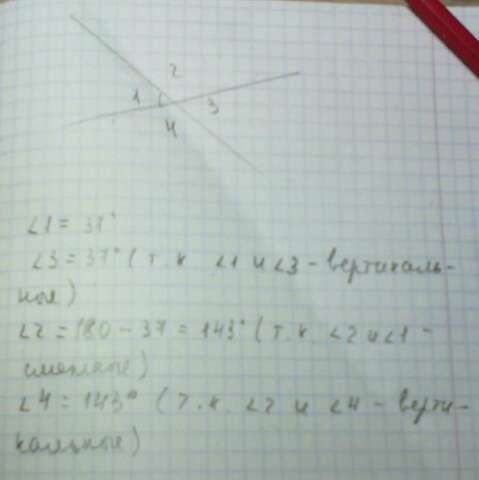 2
1
3
4
∠1 = 37°
∠3 = 37° (т. к ∠1 и ∠3 - вертикаль-
ные)
∠2 = 180 - 37 = 143° (т. к. ∠2 и ∠1 -
смежные)
∠4 = 143° (т. к. ∠2 и ∠4 - верти-
кальные)